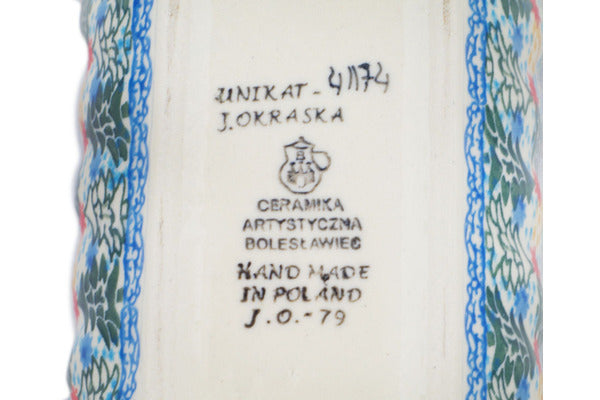 UNIKAT - 41174
J. OKRASKA
B
CERAMIKA
ARTYSTYCZNA
BOLESŁAWIEC
HAND MADE
IN POLAND
J.O.-79